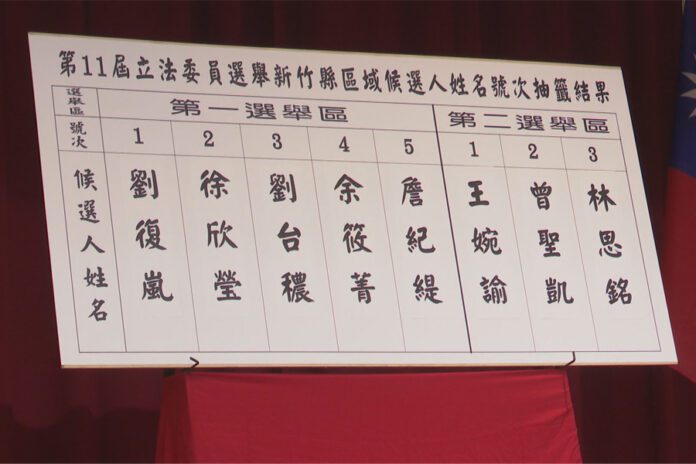 第11屆立法委員選舉新竹縣區域候選人姓名號次抽籤結果
選舉區 第一選舉區 第二選舉區
號次 1 2 3 4 5 1 2 3
候選人姓名 劉復嵐 徐欣瑩 劉台穠 余筱菁 詹紀緹 王婉諭 曾聖凱 林思銘